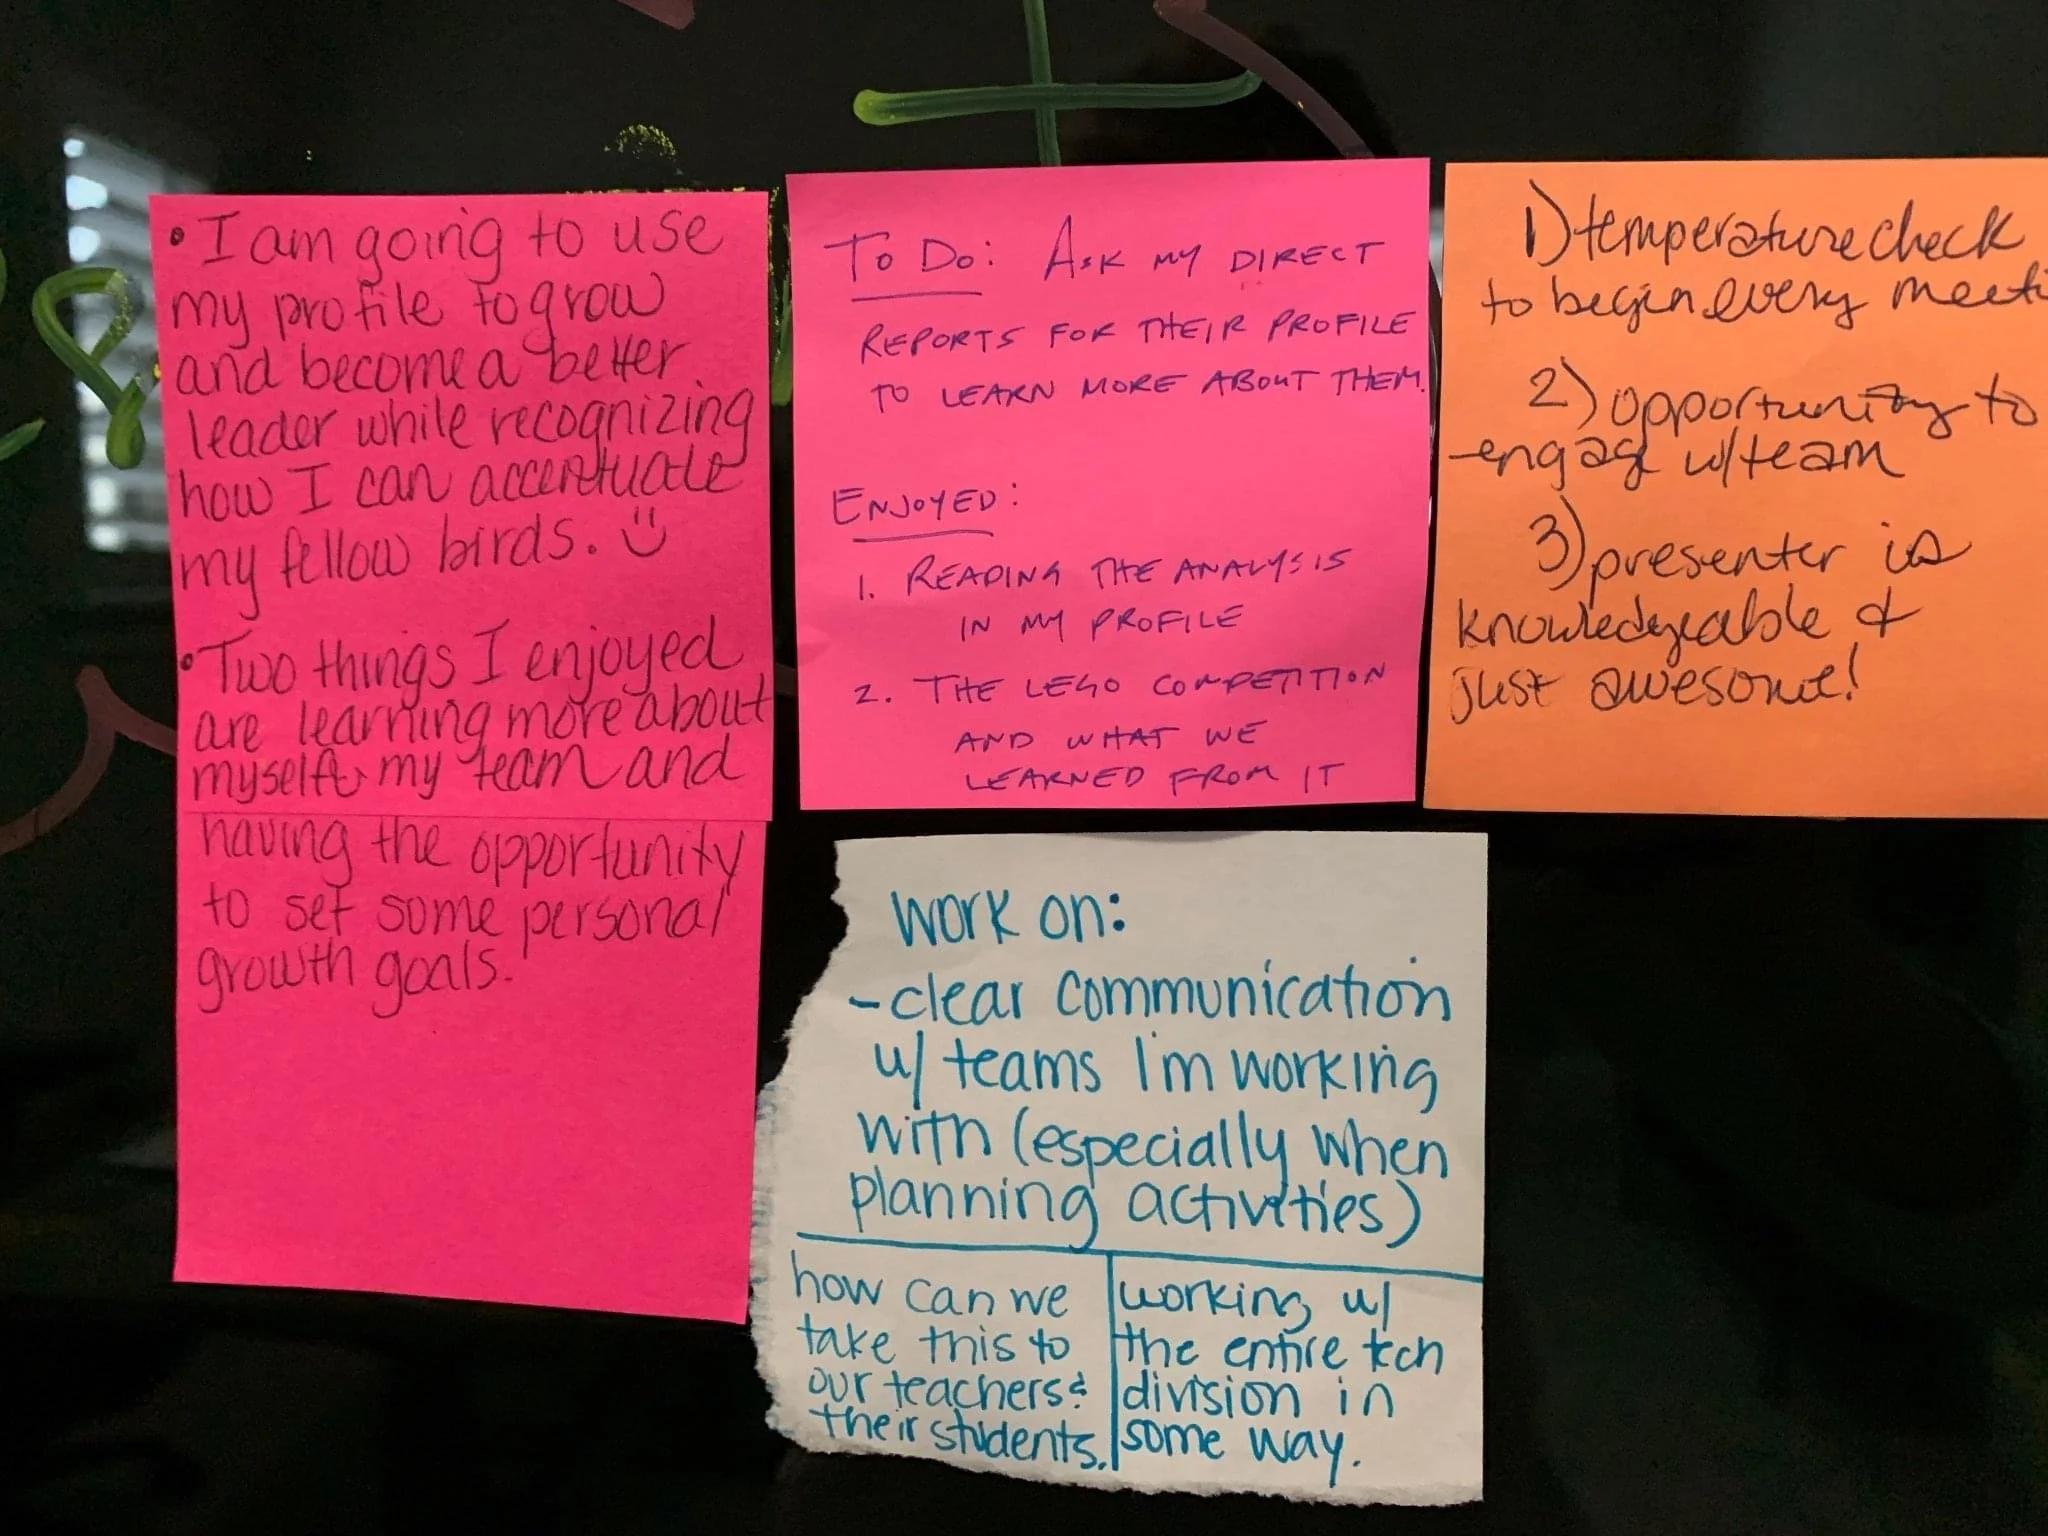 • I am going to use
my profile to grow
and become a better
leader while recognizing
how I can accentuate
my fellow birds.
• Two things I enjoyed
are learning more about
myself, my team and
having the opportunity
to set some personal
growth goals.
To Do: Ask my direct
reports for their profile
to learn more about them.
Enjoyed:
1. Reading the analysis
in my profile
2. The Lego competition
and what we
learned from it
1) temperature check
to begin every meeti
2) opportunity to
engage w/ team
3) presenter is
knowledgeable &
just awesome!
work on:
- clear communication
w/ teams I'm working
with (especially when
planning activities)
how can we
take this to
our teachers &
their students.
working w/
the entire tech
division in
some way.